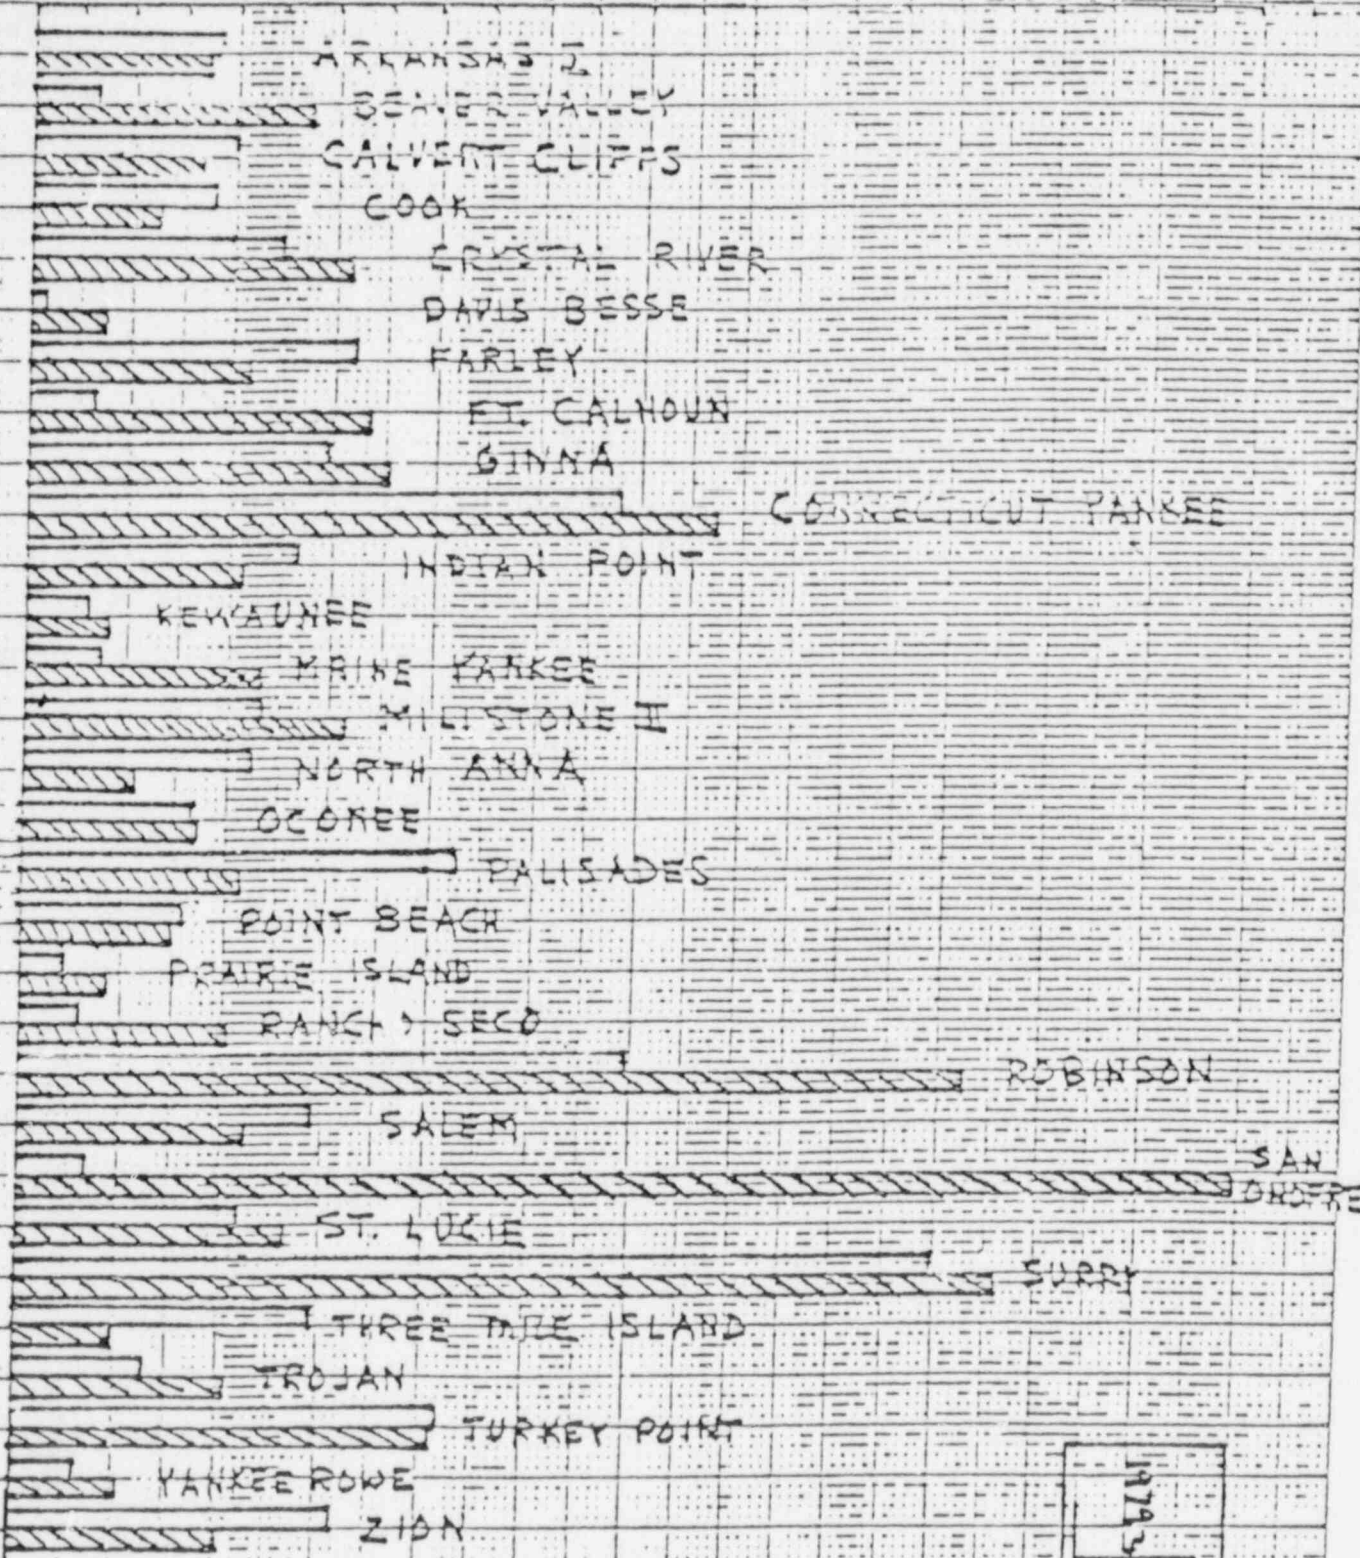 ARKANSAS I
BEAVER VALLEY
CALVERT CLIFFS
COOK
CRYSTAL RIVER
DAVIS BESSE
FARLEY
FT. CALHOUN
GINNA
CONNECTICUT YANKEE
INDIAN POINT
KEWAUNEE
MAINE YANKEE
MILLSTONE II
NORTH ANNA
OCONEE
PALISADES
POINT BEACH
PRAIRIE ISLAND
RANCHO SECO
ROBINSON
SALEM
SAN
ONOFRE
ST. LUCIE
SURRY
THREE MILE ISLAND
TROJAN
TURKEY POINT
YANKEE ROWE
ZION
1979